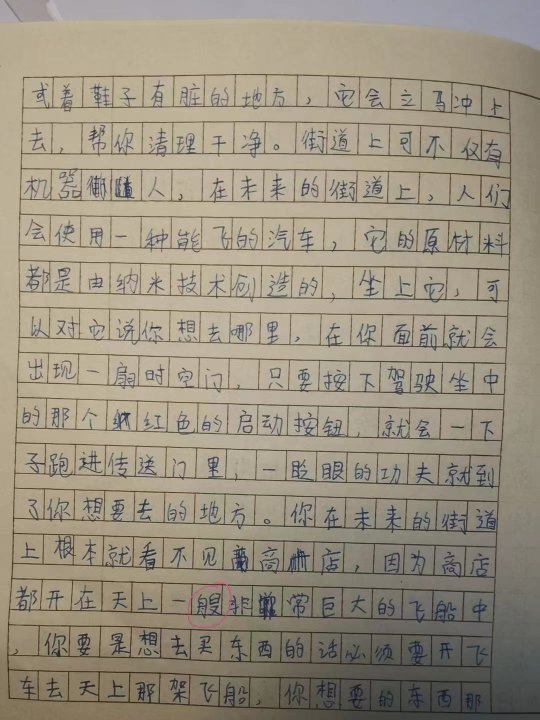 或着鞋子有脏的地方，它会立马冲上
去，帮你清理干净。街道上可不仅有
机器人，在未来的街道上，人们
会使用一种能飞的汽车，它的原材料
都是由纳米技术创造的，坐上它，可
以对它说你想去哪里，在你面前就会
出现一扇时空门，只要按下驾驶坐中
的那个红色的启动按钮，就会一下
子跑进传送门里，一眨眼的功夫就到
了你想要去的地方。你在未来的街道
上根本就看不见商店，因为商店
都开在天上一艘非常巨大的飞船中
，你要是想去买东西的话必须要开飞
车去天上那架飞船，你想要的东西那